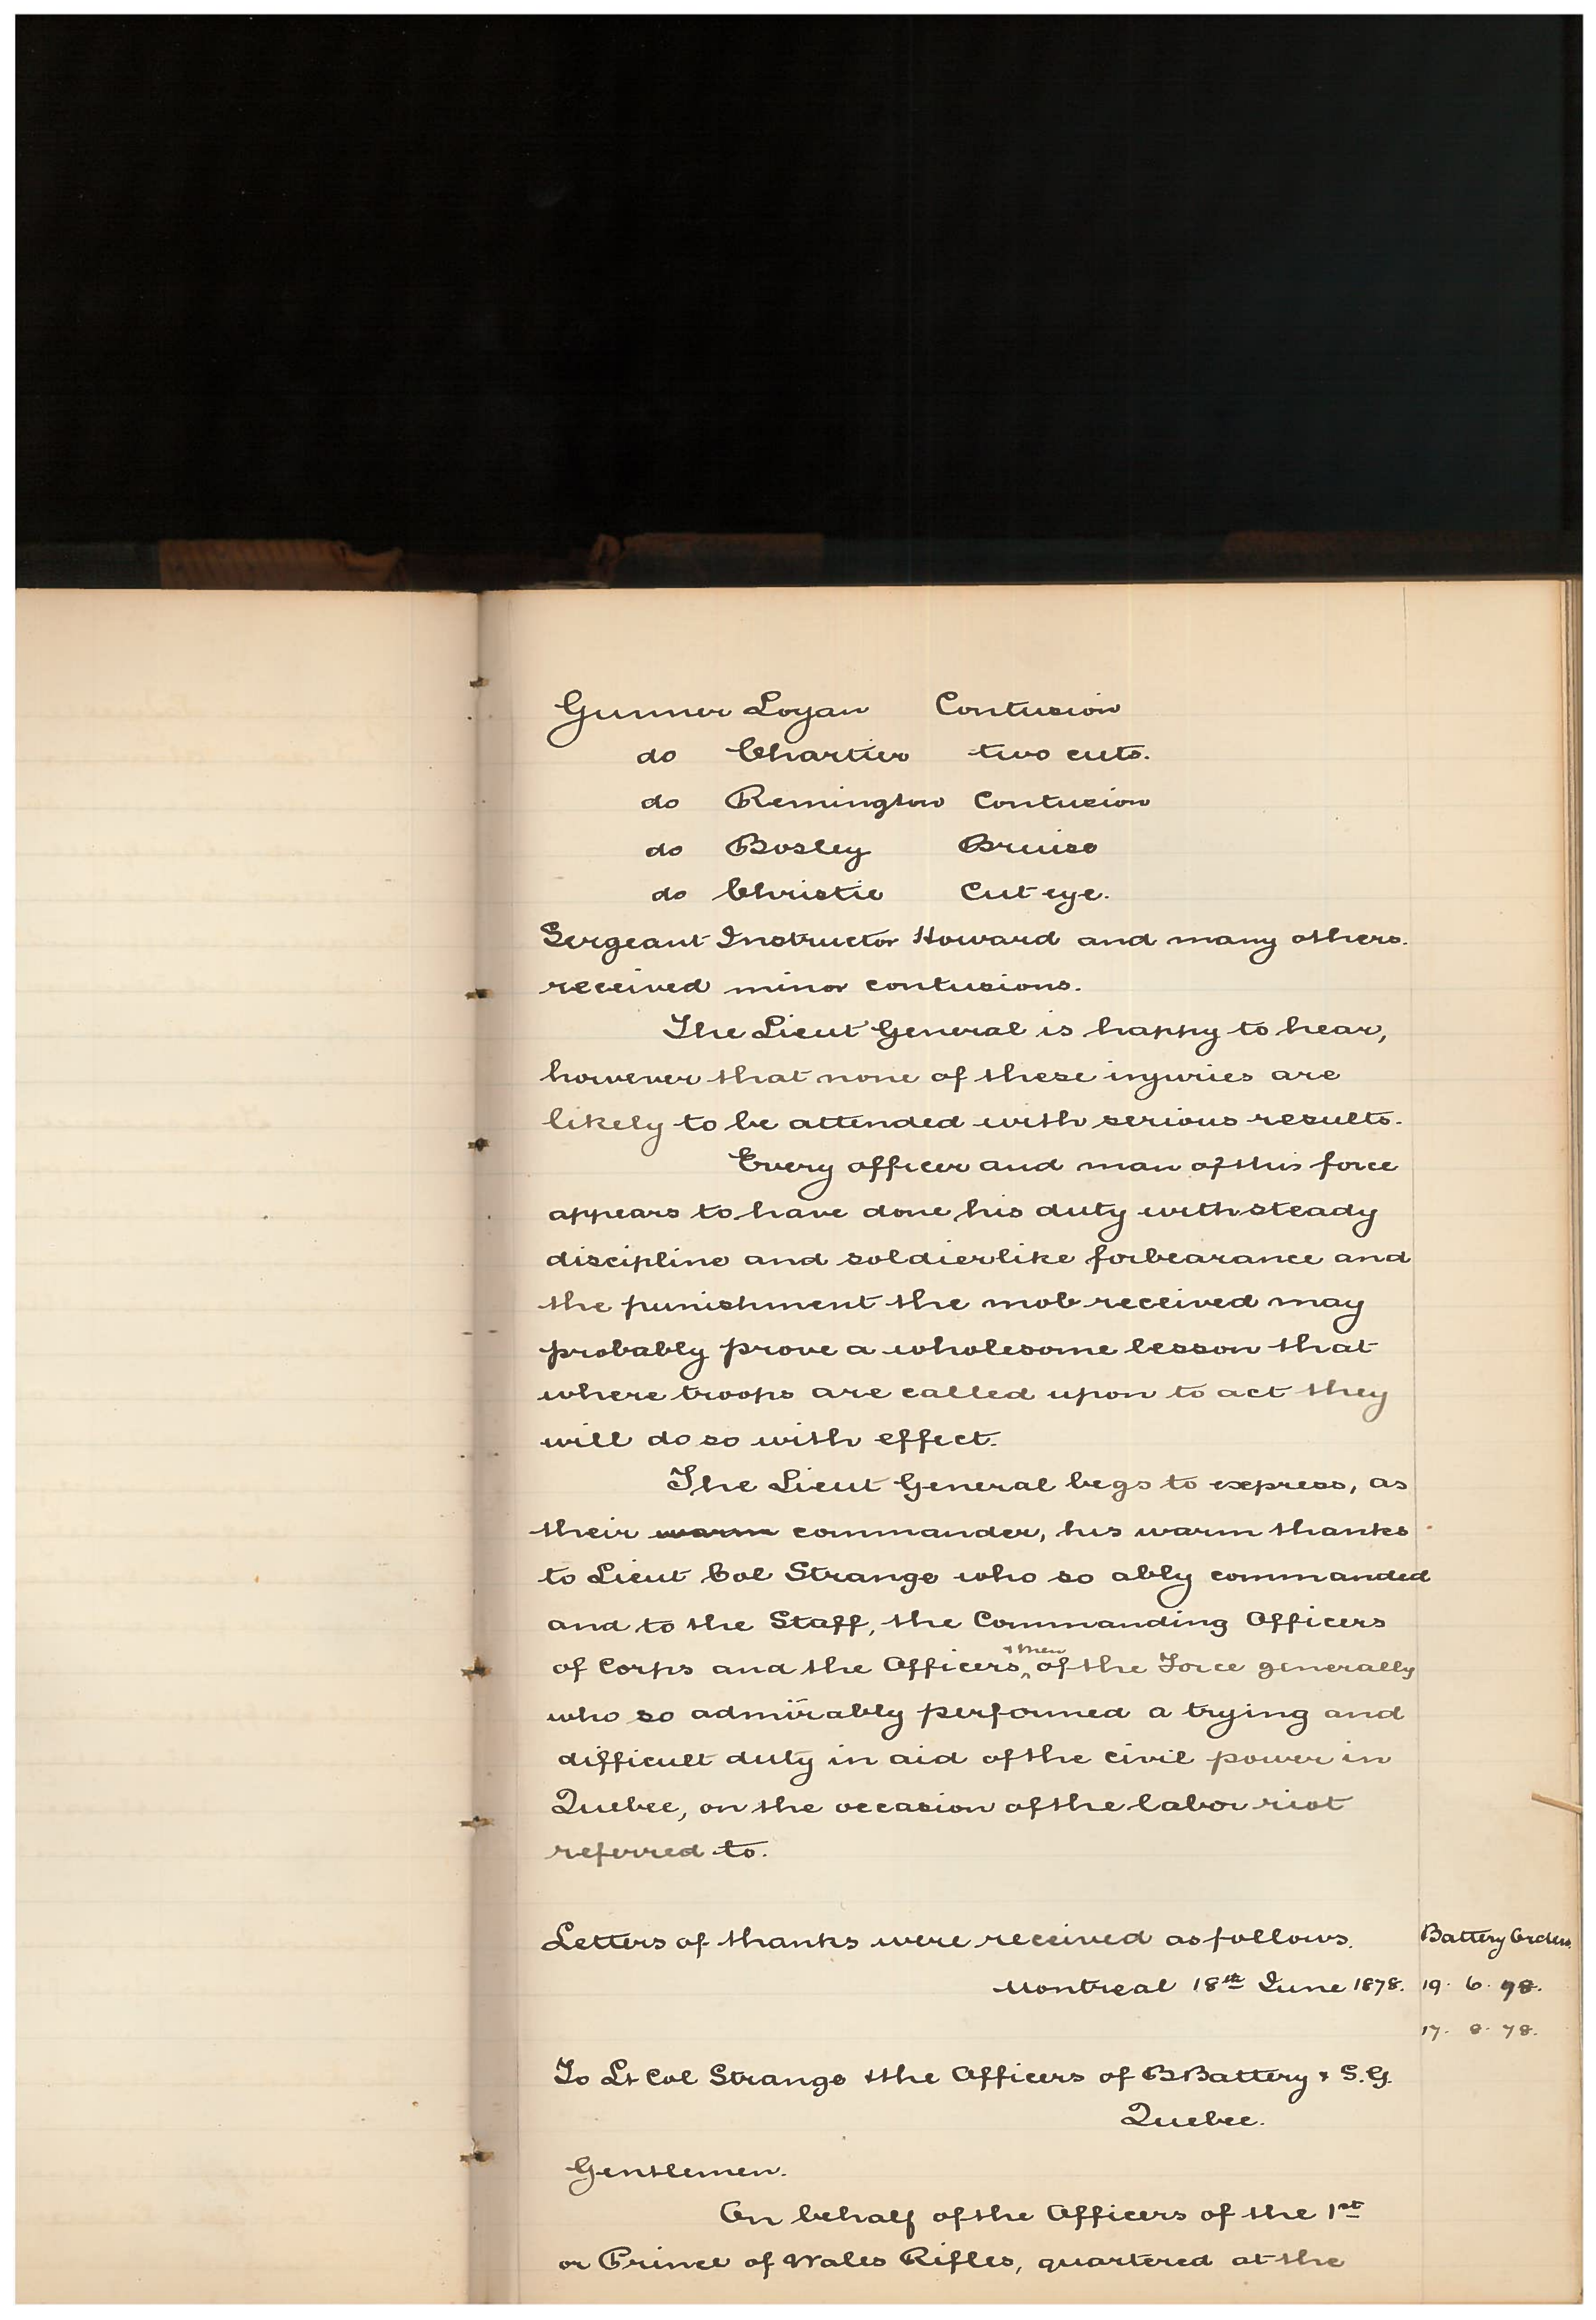 Gunner Logan Contusion
do Chartier two cuts.
do Remington Contusion
do Bosley Bruise
do Christie Cut eye.
Sergeant Instructor Howard and many others.
received minor contusions.
The Lieut General is happy to hear,
however that none of these injuries are
likely to be attended with serious results.
Every officer and man of this force
appears to have done his duty with steady
discipline and soldierlike forbearance and
the punishment the mob received may
probably prove a wholesome lesson that
where troops are called upon to act they
will do so with effect.
The Lieut General begs to express, as
their warm commander, his warm thanks
to Lieut Col Strange who so ably commanded
and to the Staff, the Commanding Officers
of Corps and the Officers & men of the Force generally
who so admirably performed a trying and
difficult duty in aid of the civil power in
Quebec, on the occasion of the labor riot
referred to.
Letters of thanks were received as follows. Battery Orders
Montreal 18th June 1878. 19. 6. 78.
17. 8. 78.
To Lt Col Strange & the Officers of B Battery & S.G.
Quebec.
Gentlemen.
On behalf of the Officers of the 1st
or Prince of Wales Rifles, quartered at the